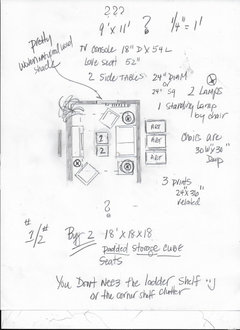 ???
9' x 11' ? 1/4" = 1'
Pretty
Woven natural wood
shade
TV console 18" D x 54 L
Love seat 52"
2 Side Tables 24" DIAM
or
24" SQ
2 Lamps
1 Standing Lamp
by chair
ART
ART
ART
Chairs are
30W x 36"
Deep
1
2
3 prints
24" x 36"
related
?
# 1/2 #
Buy 2 18' x 18 x 18
padded storage cube
seats
You Don't Need the ladder shelf :)
or the corner shelf clutter